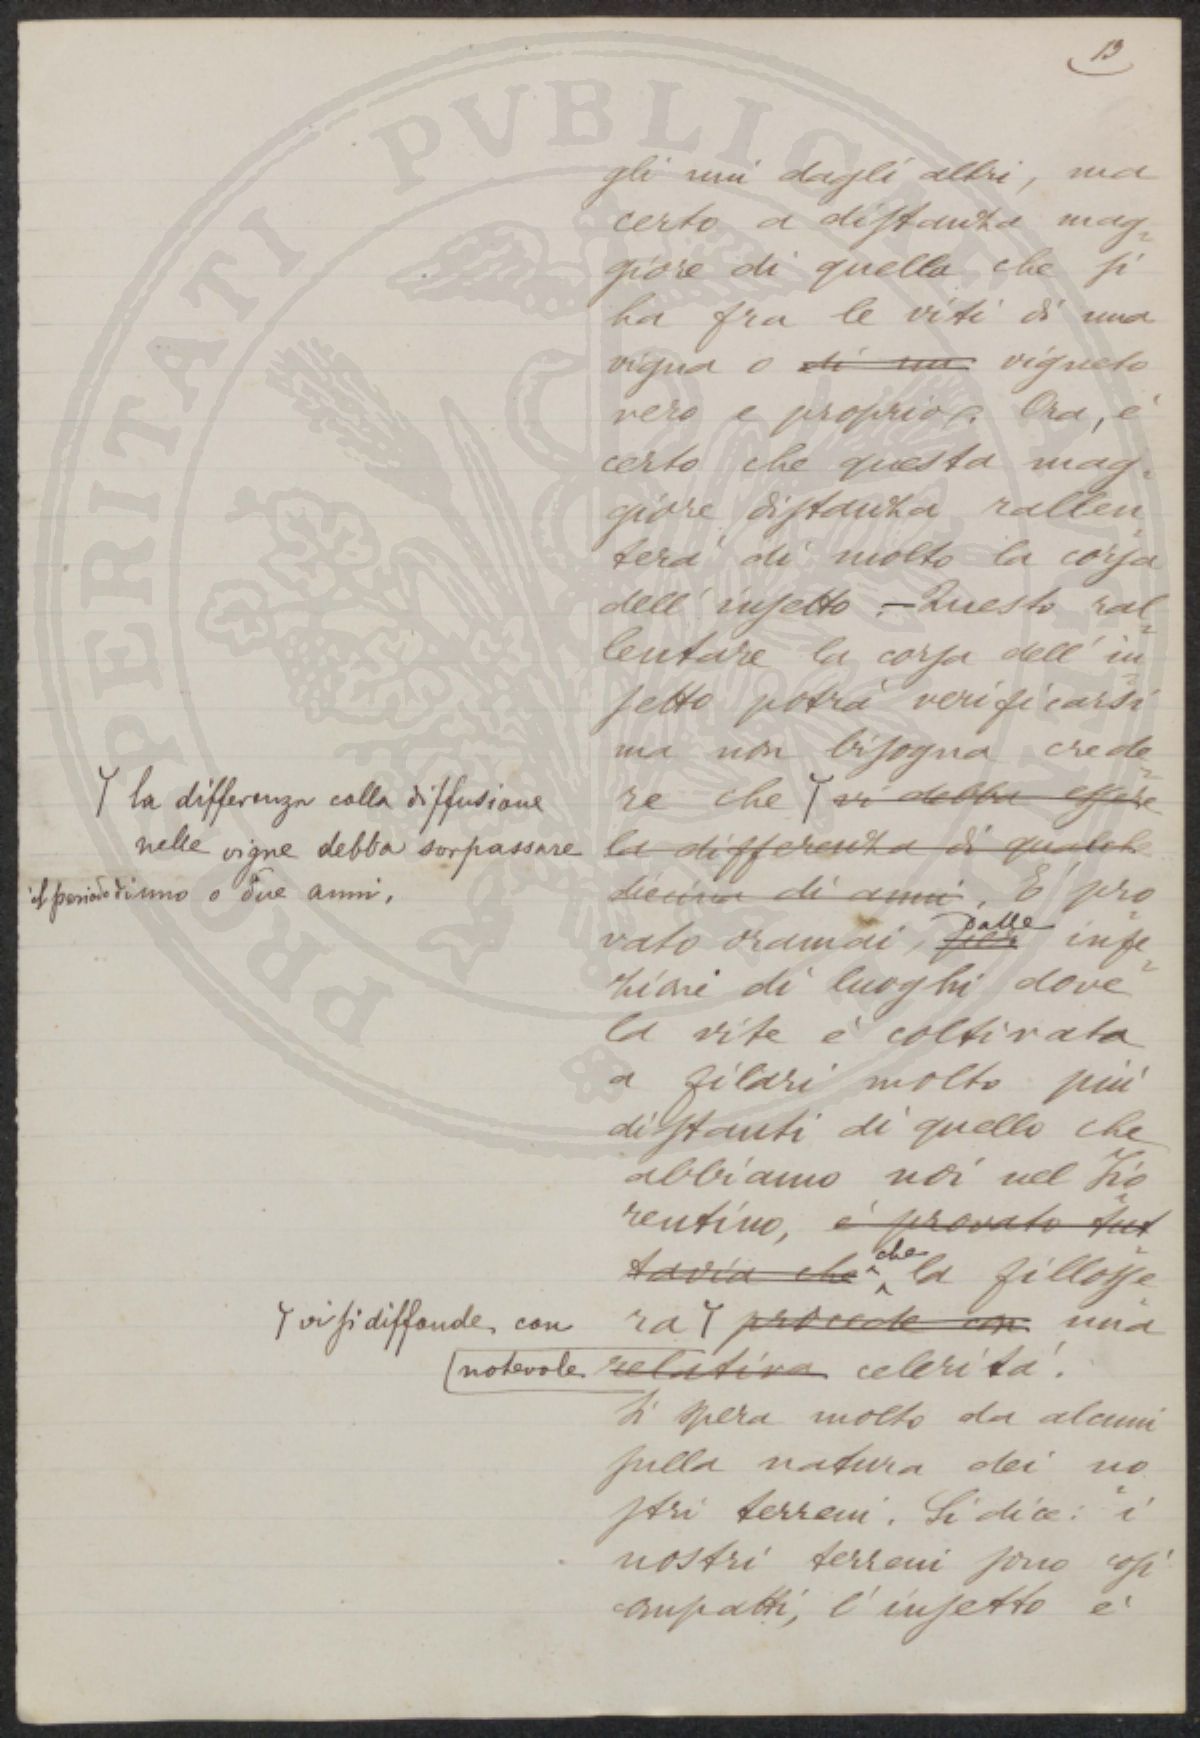 13
gli uni dagli altri, ma
certo a distanza mag=
giore di quella che si
ha fra le viti di una
vigna o di un vigneto
vero e proprio. Ora, è
certo che questa mag=
giore distanza rallen=
terà di molto la corsa
dell'insetto. - Questo ral=
lentare la corsa dell'in=
setto potrà verificarsi
ma non bisogna crede=
re che vi debba essere
la differenza di qualche
diecina di anni. È pro=
vato oramai, per dalle infe=
zioni di luoghi dove
la vite è coltivata
a filari molto più
distanti di quello che
abbiamo noi nel Fio=
rentino, è provato tut=
tavia che che la fillosse=
ra procede con una
relativa celerità.
Si spera molto da alcuni
sulla natura dei no=
stri terreni. Si dice: i
nostri terreni sono così
compatti, l'insetto è
la differenza colla diffusione
nelle vigne debba sorpassare
il periodo di uno o due anni.
vi si diffonde con
notevole
PROSPERITATI PVBLICAE